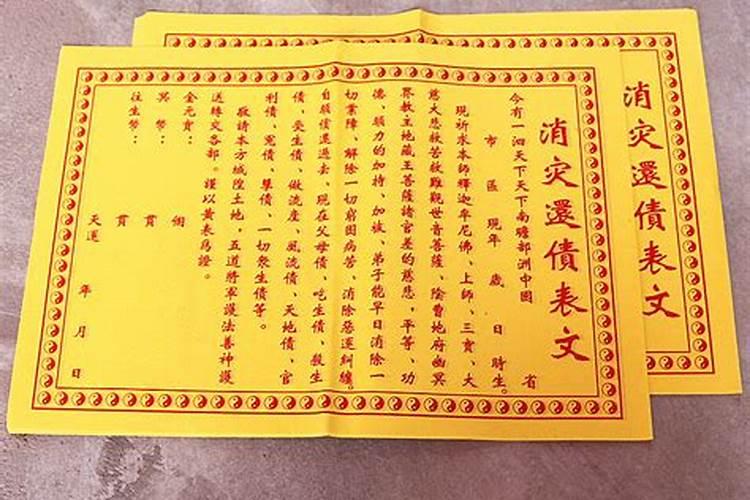 消灾還債表文
今有一泗天下天下南贍部洲中國 省
市 區 現年 歲 日 時生。
現祈求本師釋迦牟尼佛、上師、三寶、大
慈大悲救苦救難觀世音菩薩、陰曹地府幽冥
界教主地藏王菩薩諸官差的慈悲,平等、功
德、願力的加持、加被、弟子能早日消除一
切業障、解除一切窮困病苦、消除惡運糾纏。
自願償還過去、現在父母債、吃生債、殺生
債、受生債、做流產、風流債、天地債、官
利債、冤債、孽債、一切衆生債等。
敬請本方城隍土地,五道將軍護法善神護
送轉交各部。謹以黃表爲證。
金元寶: 個
冥 幣: 貫
往生幣: 貫
天運 年 月 日
消灾還債表文